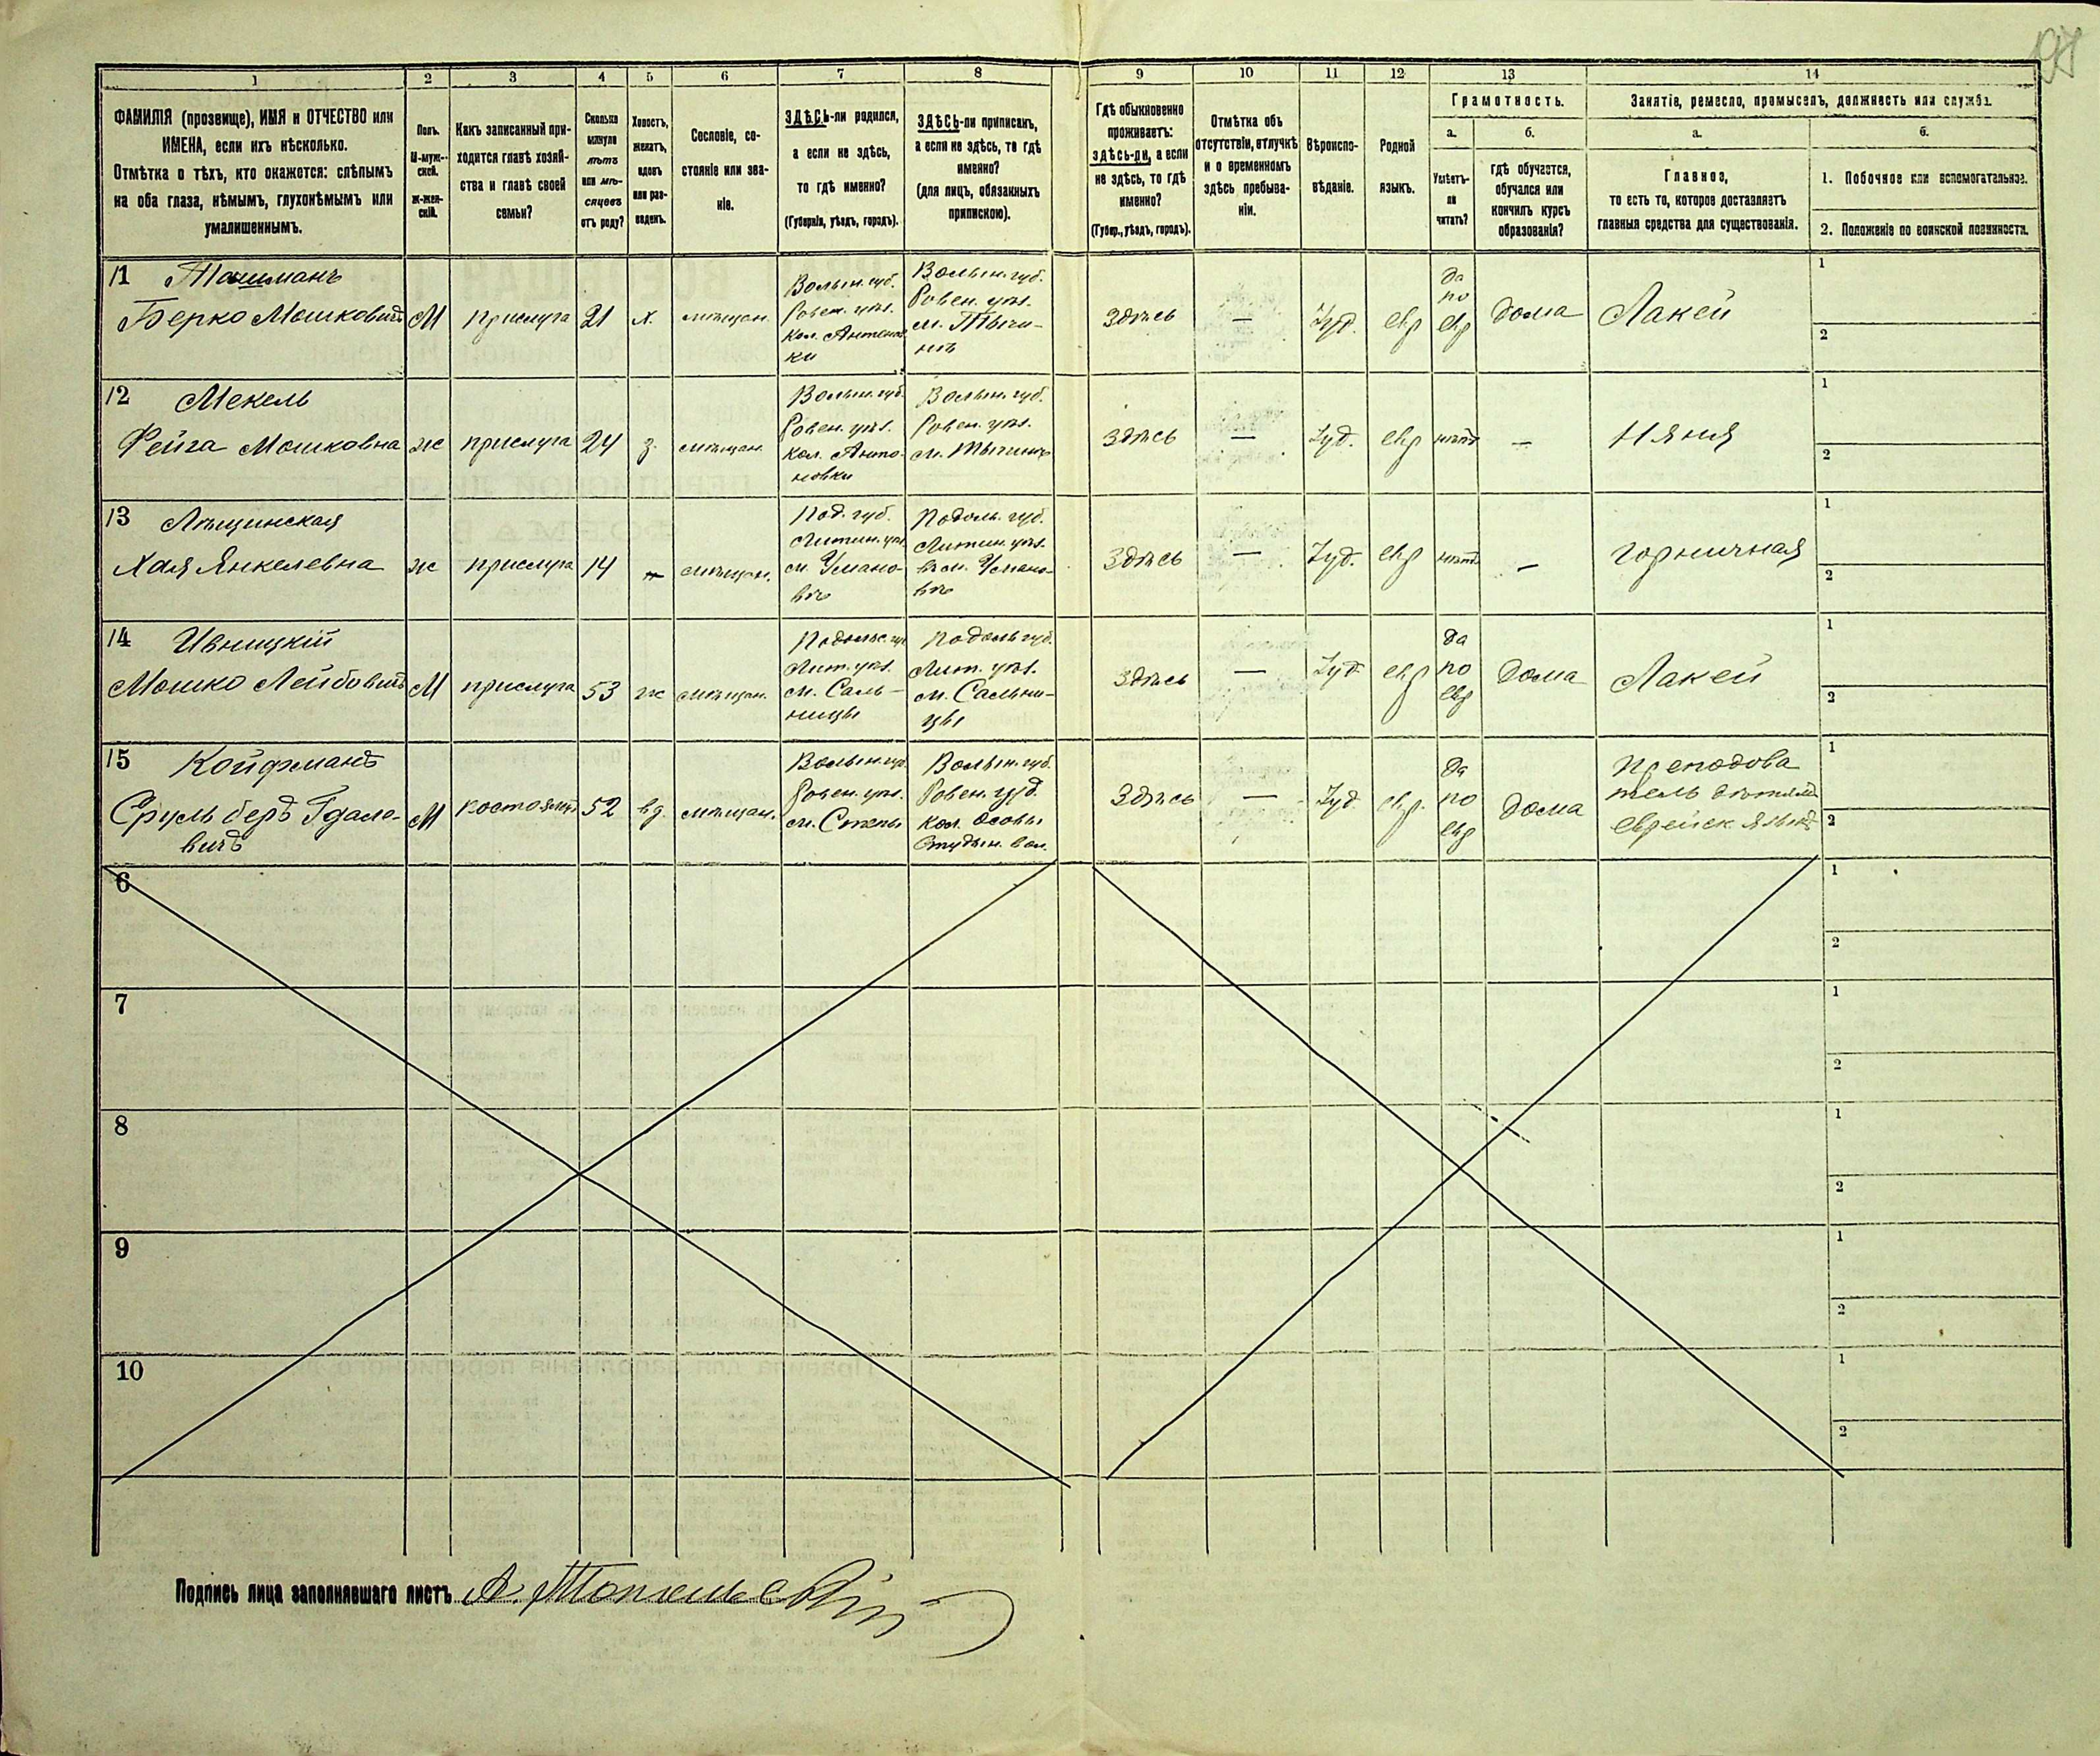 1 2 3 4 5 6 7 8 9 10 11 12 13 14
ФАМИЛІЯ (прозвище), ИМЯ и ОТЧЕСТВО или
ИМЕНА, если ихъ нѣсколько.
Отмѣтка о тѣхъ, кто окажется: слѣпымъ
на оба глаза, нѣмымъ, глухонѣмымъ или
умалишеннымъ.
Полъ.
М-муж-
ской.
ж-жен-
скій.
Какъ записанный при-
ходится главѣ хозяй-
ства и главѣ своей
семьи?
Сколько
минуло
лѣтъ
или мѣ-
сяцевъ
отъ роду?
Холостъ,
женатъ,
вдовъ
или раз-
веденъ.
Сословіе, со-
стояніе или зва-
ніе.
ЗДѢСЬ-ли родился,
а если не здѣсь,
то гдѣ именно?
(Губернія, уѣздъ, городъ).
ЗДѢСЬ-ли приписанъ,
а если не здѣсь, то гдѣ
именно?
(для лицъ, обязанныхъ
припискою).
Гдѣ обыкновенно
проживаетъ:
здѣсь-ли, а если
не здѣсь, то гдѣ
именно?
(Губер., уѣздъ, городъ).
Отмѣтка объ
отсутствіи, отлучкѣ
и о временномъ
здѣсь пребыва-
ніи.
Вѣроиспо-
вѣданіе.
Родной
языкъ.
Грамотность.
а.
Умѣетъ-
ли
читать?
б.
гдѣ обучается,
обучался или
кончилъ курсъ
образованія?
Занятіе, ремесло, промыселъ, должность или служба.
а.
Главное,
то есть то, которое доставляетъ
главныя средства для существованія.
б.
1. Побочное или вспомогательное.
2. Положеніе по воинской повинности.
11
Берко Мошковичъ
М
прислуга
21
х.
мѣщан.
Волын. губ.
Ровен. уѣз.
кол. Антонов
ки
Волын. губ.
Ровен. уѣз.
м. Тучи-
нѣ
Здѣсь
—
Іуд.
евр
Да
по
евр
Дома
Лакей
1
2
12 Мекель
Фейга Мошковна
ж
прислуга
24
з.
мѣщан.
Волын. губ.
Ровен. уѣз.
кол. Анто-
новки
Волын. губ.
Ровен. уѣз.
Здѣсь
—
Іуд.
евр
нѣтъ
—
Няня
1
2
13 Лѣщинская
Хая Янкелевна
ж
прислуга
14
мѣщан.
Под. губ.
Литин. уѣз.
м. Улано-
вѣ
Подоль. губ.
Литин. уѣз.
Улано-
вѣ
Здѣсь
—
Іуд.
евр
нѣтъ
—
горничная
1
2
14 Ивницкій
Мошко Лейбовичъ
М
прислуга
53
ж
мѣщан.
Лит. уѣз.
м. Саль-
ницы
Подоль губ.
Лит. уѣз.
м. Сальни-
цы
Здѣсь
—
Іуд
евр
Да
по
евр
Дома
Лакей
1
2
15 Койфманъ
Сруль беръ Гдале-
вичъ
М
52
вд.
мѣщан.
Волын. губ.
Ровен. уѣз.
м. Степы
Волын. губ.
Ровен. уѣд.
кол. Особы
Здѣсь
—
Іуд
евр.
Да
по
евр
Дома
Преподова
тель дѣтямъ
еврейск языкъ
1
2
6
1
2
7
1
2
8
1
2
9
1
2
10
1
2
Подпись лица заполнявшаго листъ